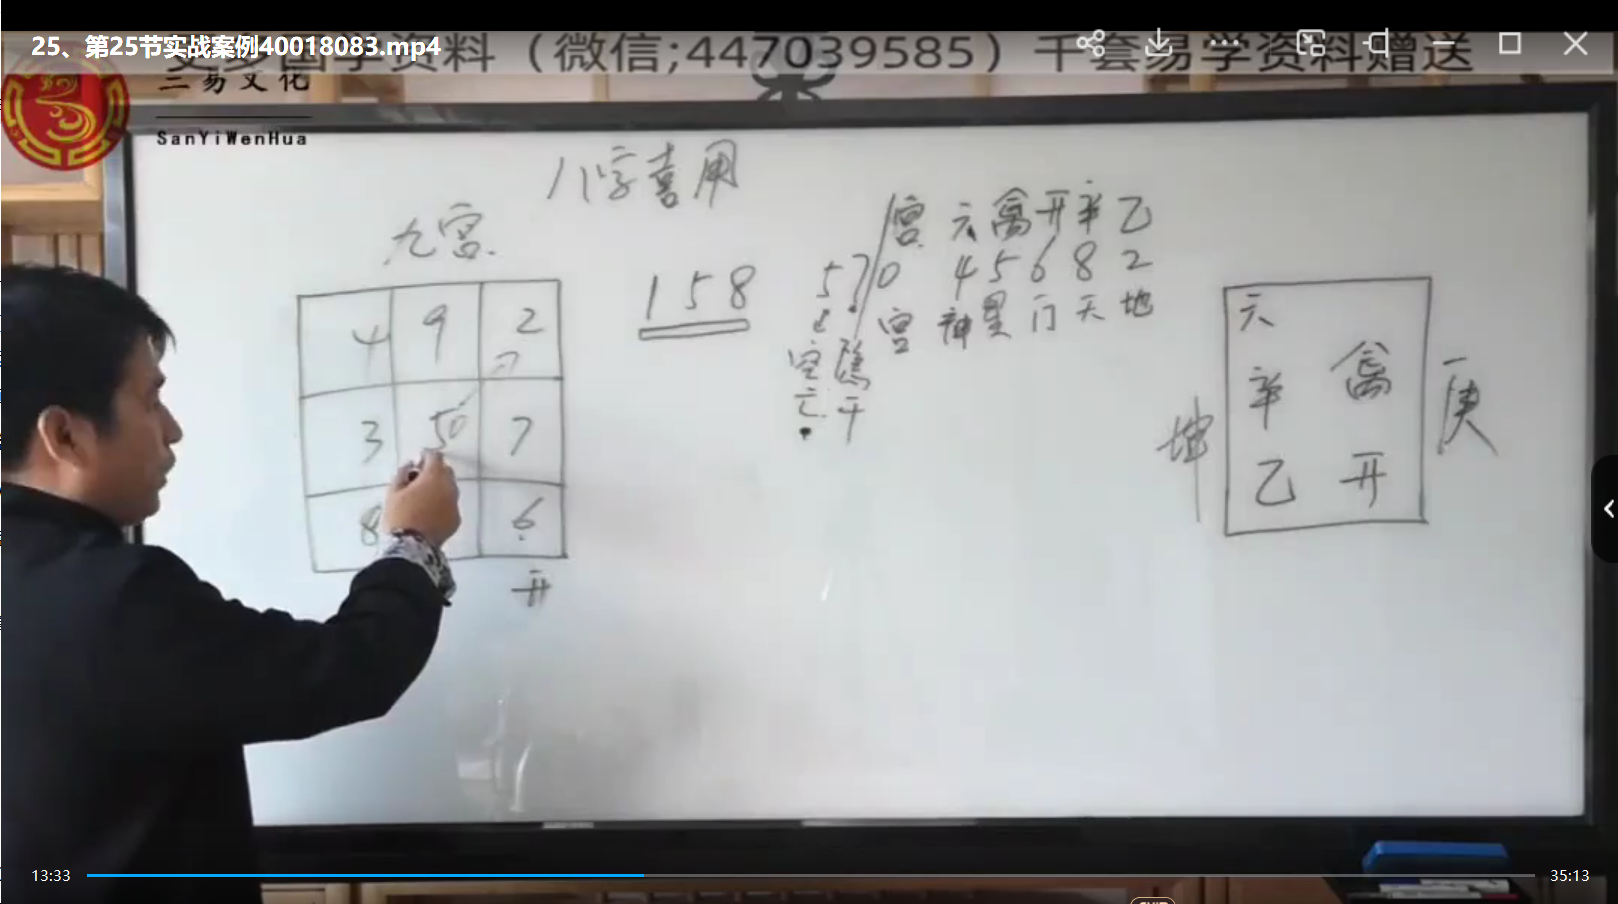 25、第25节实战案例40018083.mp4
国学资料（微信;447039585）千套易学资料赠送
三易文化
SanYiWenHua
八字喜用
九宫
4 9 2
3 5 0 7
8 6
开
158
570 45682
空亡 隐干
宫 神 星 门 天 地
宫 六 禽 开 辛 乙
六
辛 禽
乙 开
坤
庚
13:33
35:13